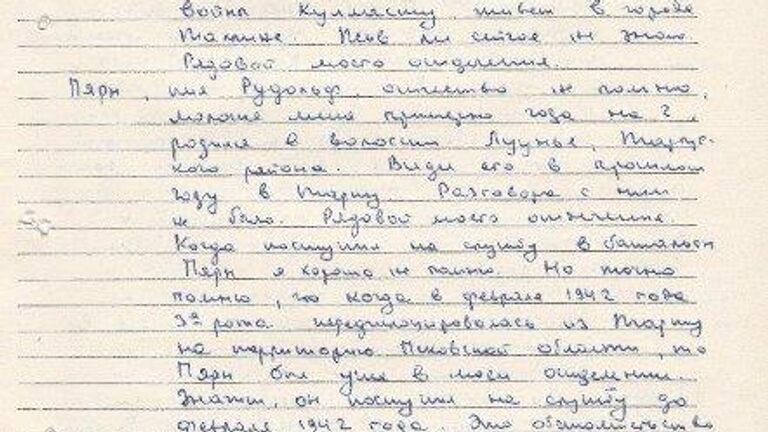 война Кулмясту, живет в городе
Таллине. Псов ли сейчас не знаю.
Рядовой моего отделения.
Пярн, имя Рудольф, отчество не помню,
моложе меня примерно года на 2,
родился в волости Луунье, Тартус-
кого района. Видел его в прошлом
году в Тарту. Разговора с ним
не было. Рядовой моего отделения.
Когда поступил на службу в батальон
Пярн я хорошо не помню. Но точно
помню, что когда в феврале 1942 года
3я рота передислоцировалась из Тарту
на территорию Псковской области, то
Пярн был уже в моем отделении.
Значит, он поступил на службу до
февраля 1942 года. Это обстоятельство